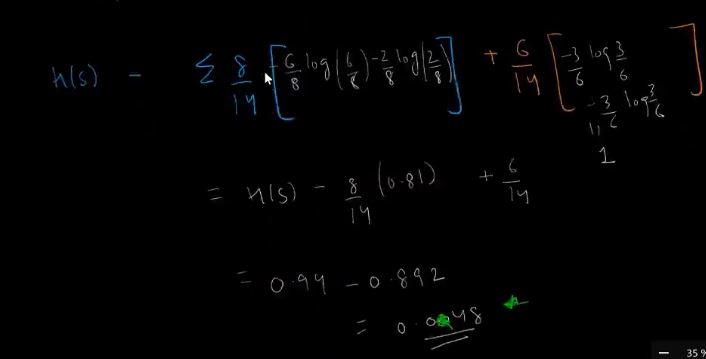 H(S) - Σ 8/14 [-6/8 log(6/8) - 2/8 log(2/8)] + 6/14 [-3/6 log 3/6
- 3/6 log 3/6]
11
1
= H(S) - 8/14 (0.81) + 6/14
= 0.94 - 0.892
= 0.048
35 %